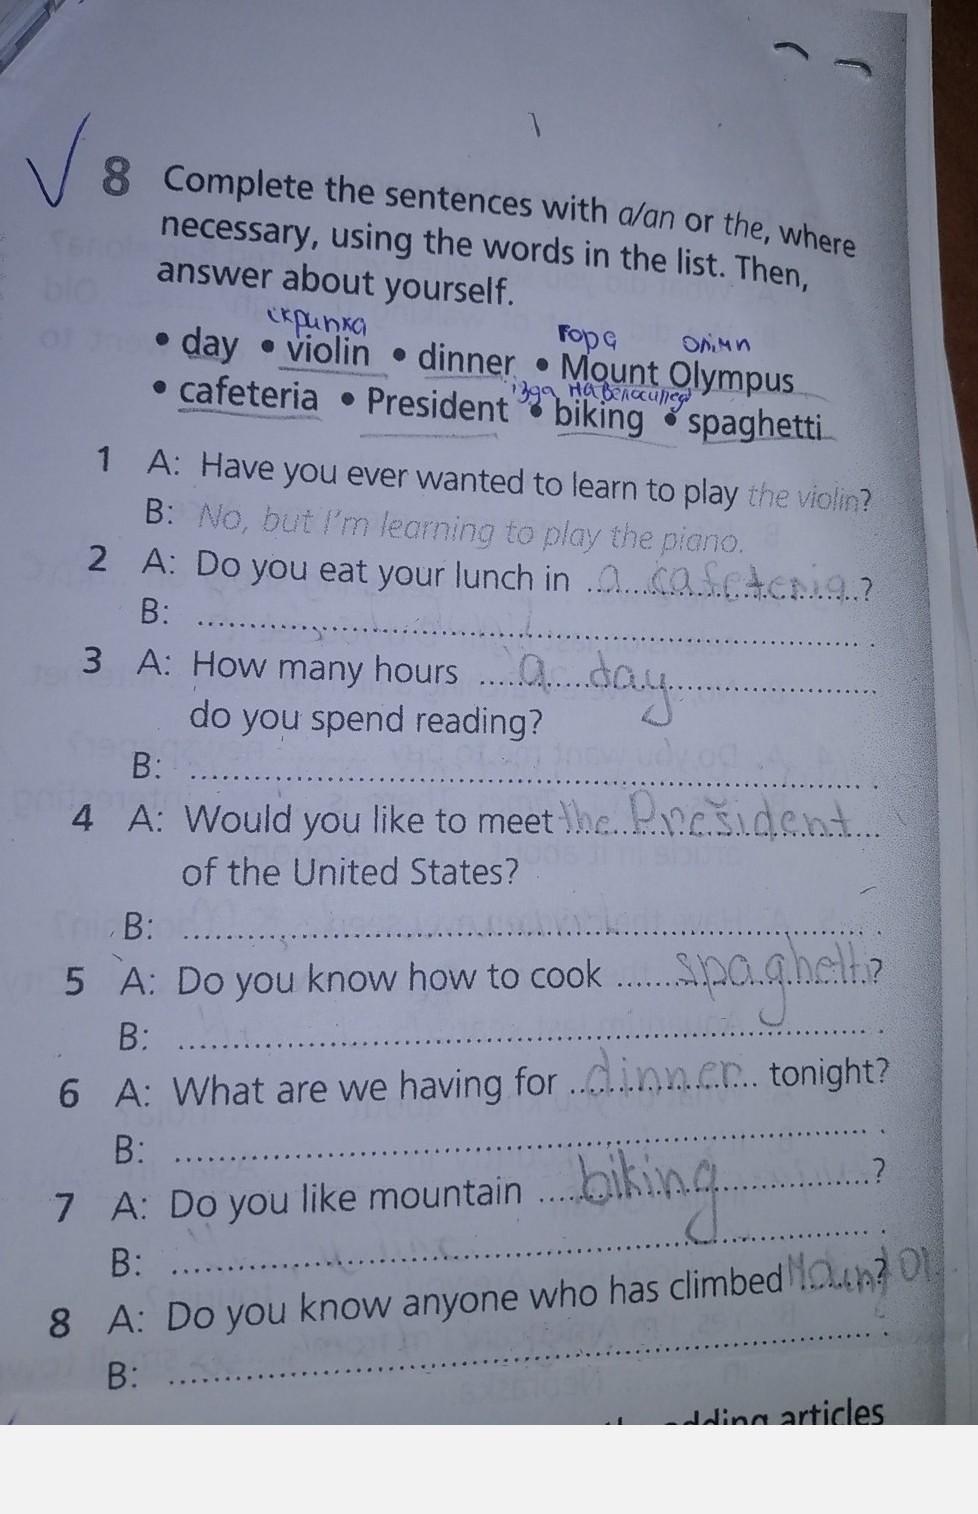 8 Complete the sentences with a/an or the, where
necessary, using the words in the list. Then,
answer about yourself.
скрипка гора олімп
• day • violin • dinner • Mount Olympus
їзда на велосипеді
• cafeteria • President • biking • spaghetti
1 A: Have you ever wanted to learn to play the violin?
B: No, but I'm learning to play the piano.
2 A: Do you eat your lunch in a cafeteria?
B:
3 A: How many hours a day
do you spend reading?
B:
4 A: Would you like to meet the President
of the United States?
B:
5 A: Do you know how to cook spaghetti?
B:
6 A: What are we having for dinner tonight?
B:
7 A: Do you like mountain biking?
B:
8 A: Do you know anyone who has climbed Mount Ol ?
B:
adding articles